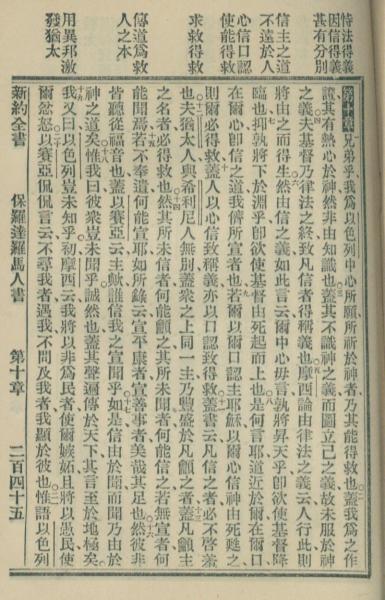 恃法得義
因信得義
甚有分別
信主之道
不遠於人
心信口認
使能得救
求救得救
傳道爲救
人之本
用異邦激
發猶太
第十章 兄弟乎、我爲以色列中心所願所祈於神者乃其能得救也蓋我爲之作
證其有熱心於神然非由知識也蓋其不識神之義而圖立己之義故未服於神
之義夫基督乃律法之終致凡信者得稱義也摩西論由律法之義云人行此則
將由之而得生然由信之義如此言云爾中心毋言孰將昇天乎卽欲使基督降
臨也抑孰將下於淵乎卽欲使基督由死起而上也是何言耶道近於爾在爾口
在爾心卽信之道我儕所宣者也若爾以爾口認主耶穌以爾心信神由死甦之
則爾必得救蓋人以心信致稱義亦以口認致得救蓋書云凡信之者必不啓羞
也夫猶太人與希利尼人無別蓋衆之上同一主乃豐盛於凡籲之者蓋凡籲主
之名者必得救也然其所未信者何能籲之其所未聞者何能信之若無宣者何
能聞焉若不奉遣何能宣耶如所錄云宣平康者宣善事者美哉其足也然彼非
皆聽從福音也蓋以賽亞云主歟誰信我之宣聞乎如是信由於聞而聞乃由於
神之道矣惟我曰彼衆豈未聞乎誠然也蓋其聲遍傳於天下其言至於地極矣
我又曰以色列豈未知乎初摩西云我將以非爲民者使爾嫉妬且將以愚民使
爾忿怒以賽亞侃侃言云不尋我者遇我不問及我者我顯於彼也惟語以色列
新約全書 保羅達羅馬人書 第十章 二百四十五